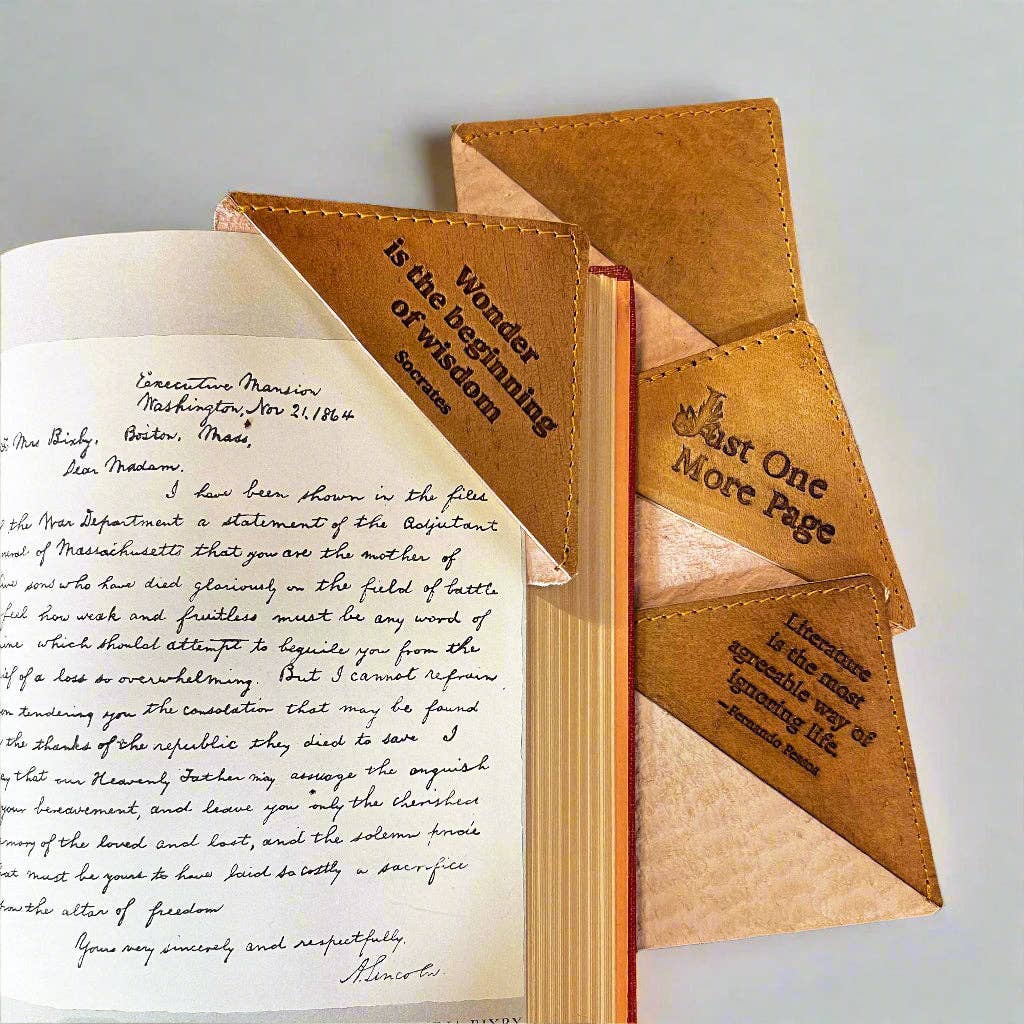 Executive Mansion
Washington, Nov 21, 1864
Mrs Bixby, Boston, Mass,
Dear Madam.
I have been shown in the files
the War Department a statement of the Adjutant
of Massachusetts that you are the mother of
sons who have died gloriously on the field of battle
feel how weak and fruitless must be any word of
which should attempt to beguile you from the
of a loss so overwhelming. But I cannot refrain
tendering you the consolation that may be found
the thanks of the republic they died to save I
that our Heavenly Father may assuage the anguish
your bereavement, and leave you only the cherished
of the loved and lost, and the solemn pride
must be yours to have laid so costly a sacrifice
the altar of freedom
Yours very sincerely and respectfully.
A. Lincoln.
BIXBY
Wonder
is the beginning
of wisdom
Socrates
Just One
More Page
Literature
is the most
agreeable way of
ignoring life.
—Fernando Pessoa